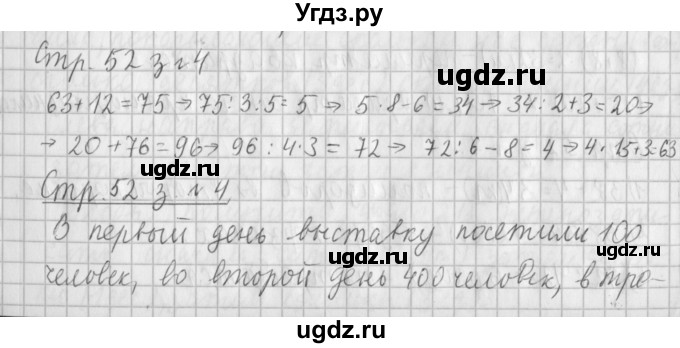 Угдз.ру
Стр. 52 з №4
ugdz.ru
63+12=75 → 75:3:5=5 → 5·8-6=34 → 34:2+3=20 →
→ 20+76=96 → 96:4·3=72 → 72:6-8=4 → 4·15+3=63
ugdz.ru
Стр. 52 з №4
В первый день выставку посетили 100
ugdz.ru
ugdz.ru
человек, во второй день 400 человек, в тре-
ugdz.ru